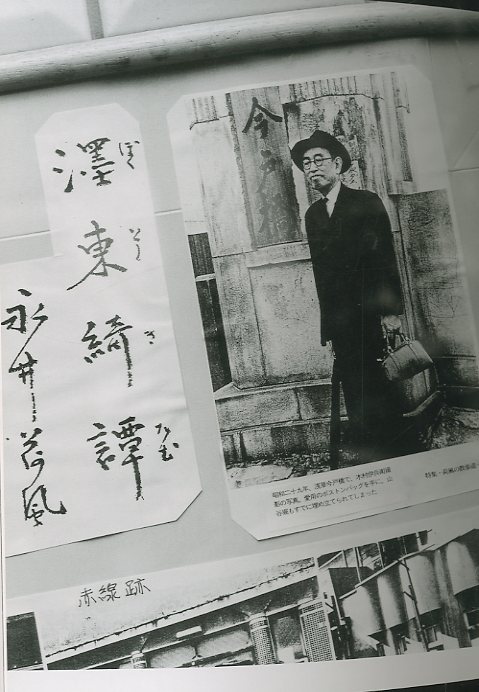 濹東綺譚
ぼくとうきたむ
永井荷風
今戸橋
昭和二十九年、浅草今戸橋で、木村伊兵衛撮
影の写真。愛用のボストンバッグを手に。山
谷堀もすでに埋め立てられてしまった
特集・荷風の散歩道
赤線跡